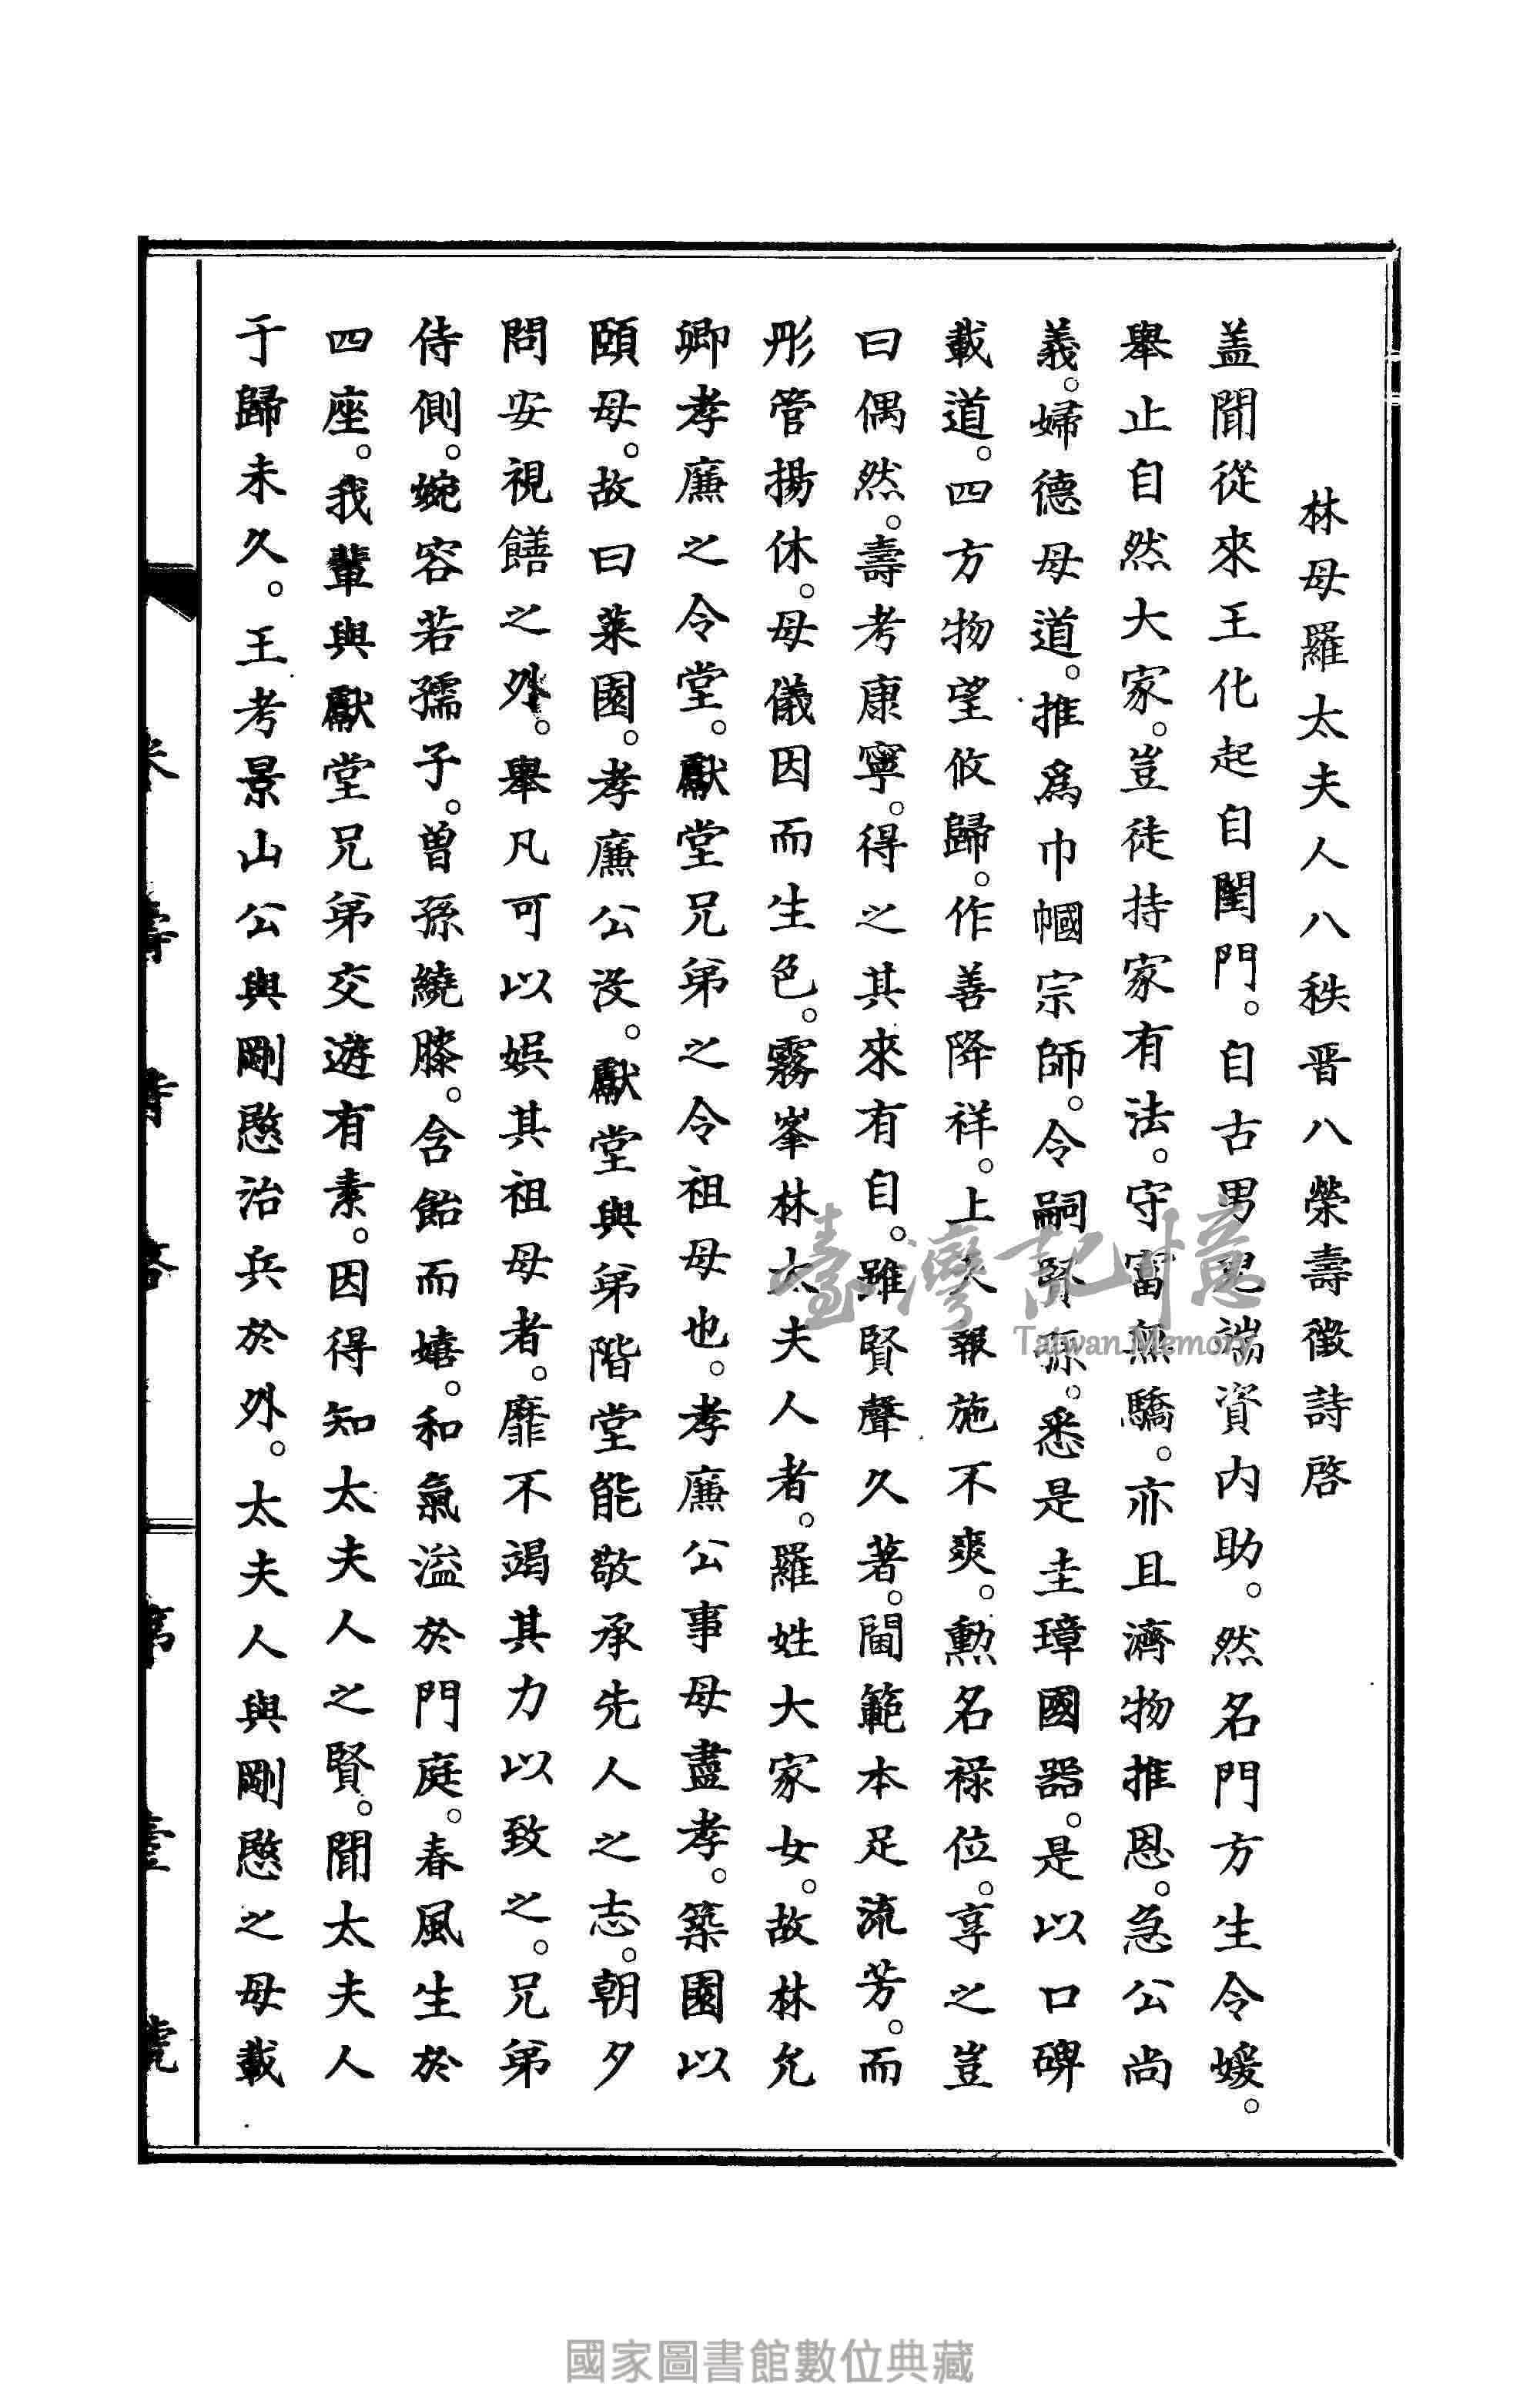 林母羅太夫人八秩晋八榮壽徵詩啓
盖聞從來王化起自閨門。自古男兒端資内助。然名門方生令媛。
舉止自然大家。豈徒持家有法。守富無驕。亦且濟物推恩。急公尚
義。婦德母道。推為巾幗宗師。令嗣賢孫。悉是圭璋國器。是以口碑
載道。四方物望攸歸。作善降祥。上天報施不爽。勲名祿位。享之豈
曰偶然。壽考康寧。得之其來有自。雖賢聲久著。閫範本足流芳。而
彤管揚休。母儀因而生色。霧峯林太夫人者。羅姓大家女。故林允
卿孝廉之令堂。獻堂兄弟之令祖母也。孝廉公事母盡孝。築園以
頤母。故曰萊園。孝廉公沒。獻堂與弟階堂能敬承先人之志。朝夕
問安視饍之外。舉凡可以娛其祖母者。靡不竭其力以致之。兄弟
侍側。婉容若孺子。曾孫繞膝。含飴而嬉。和氣溢於門庭。春風生於
四座。我輩與獻堂兄弟交遊有素。因得知太夫人之賢。聞太夫人
于歸未久。王考景山公與剛愍治兵於外。太夫人與剛愍之母載
臺灣記憶
Taiwan Memory
國家圖書館數位典藏